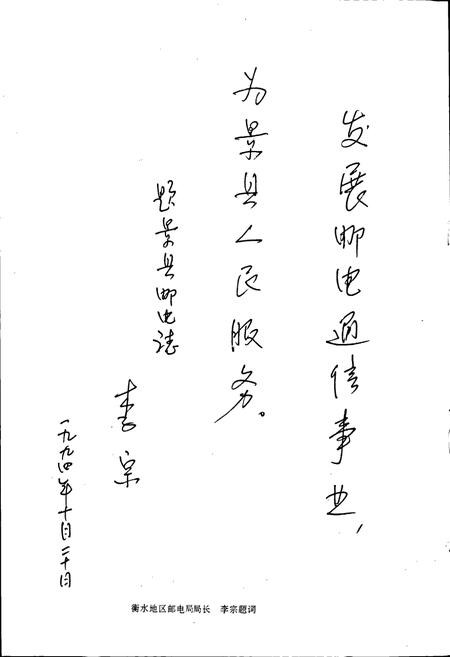 发展邮电通信事业，
为景县人民服务。
题景县邮电志
李宗
一九九四年十月二十日
衡水地区邮电局局长 李宗题词